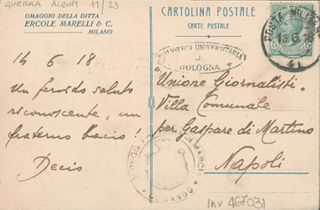 GUERRA ALBUM 11/23
OMAGGIO DELLA DITTA
ERCOLE MARELLI & C.
MILANO
CARTOLINA POSTALE
CARTE POSTALE
POSTA MILITARE
41
BIBLIOTECA UNIVERSITARIA
BOLOGNA
14 6 18
Un fervido saluto
riconoscente, un
fraterno bacio!
Decio
Unione Giornalisti
Villa Comunale
per Gaspare di Martino
Napoli
COMANDO
Inv 467031